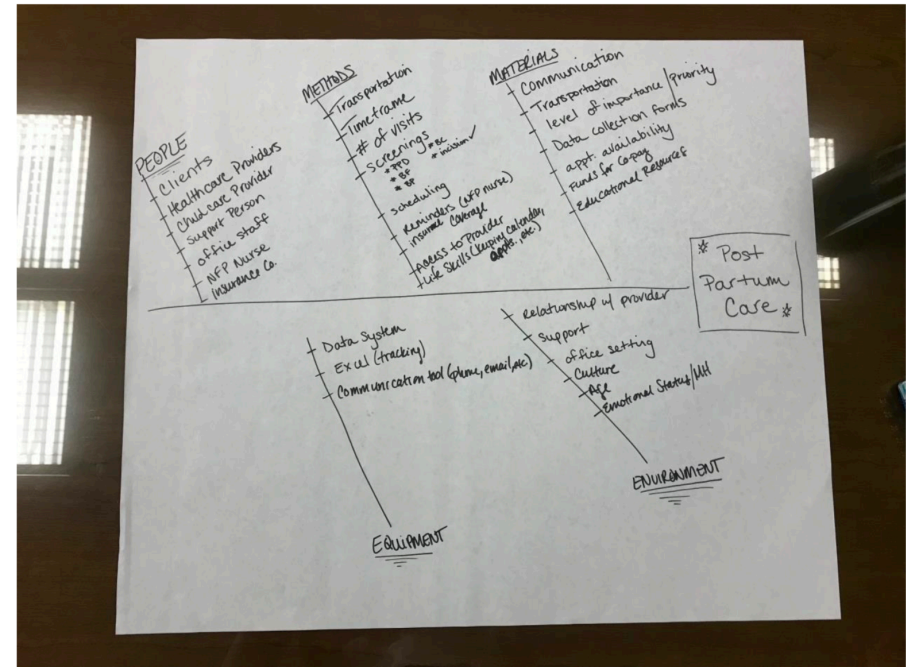 PEOPLE
Clients
Healthcare Providers
Childcare Provider
Support Person
office staff
NFP Nurse
insurance Co.
METHODS
Transportation
Timeframe
# of visits
Screenings
* PPD
* BF
* BP
* BC
* incision ✓
Scheduling
Reminders (NFP nurse)
insurance Coverage
Access to Provider
Life Skills (keeping calendar,
appts., etc.)
MATERIALS
Communication
Transportation
level of importance/priority
Data collection forms
appt. availability
Funds for co-pay
Educational Resources
* Post
Partum
Care *
Data System
Excel (tracking)
Communication tool (phone, email, etc)
EQUIPMENT
Relationship w/ provider
Support
office setting
Culture
Age
Emotional Status/MH
ENVIRONMENT